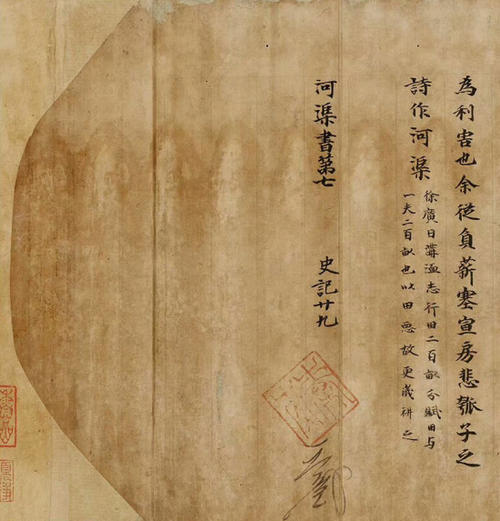 為利害也余従負薪塞宣房悲瓠子之
詩作河渠
徐廣曰溝洫志行田二百畝分賦田与
一夫二百畝也以田悪故更歳耕之
河渠書第七
史記廿九